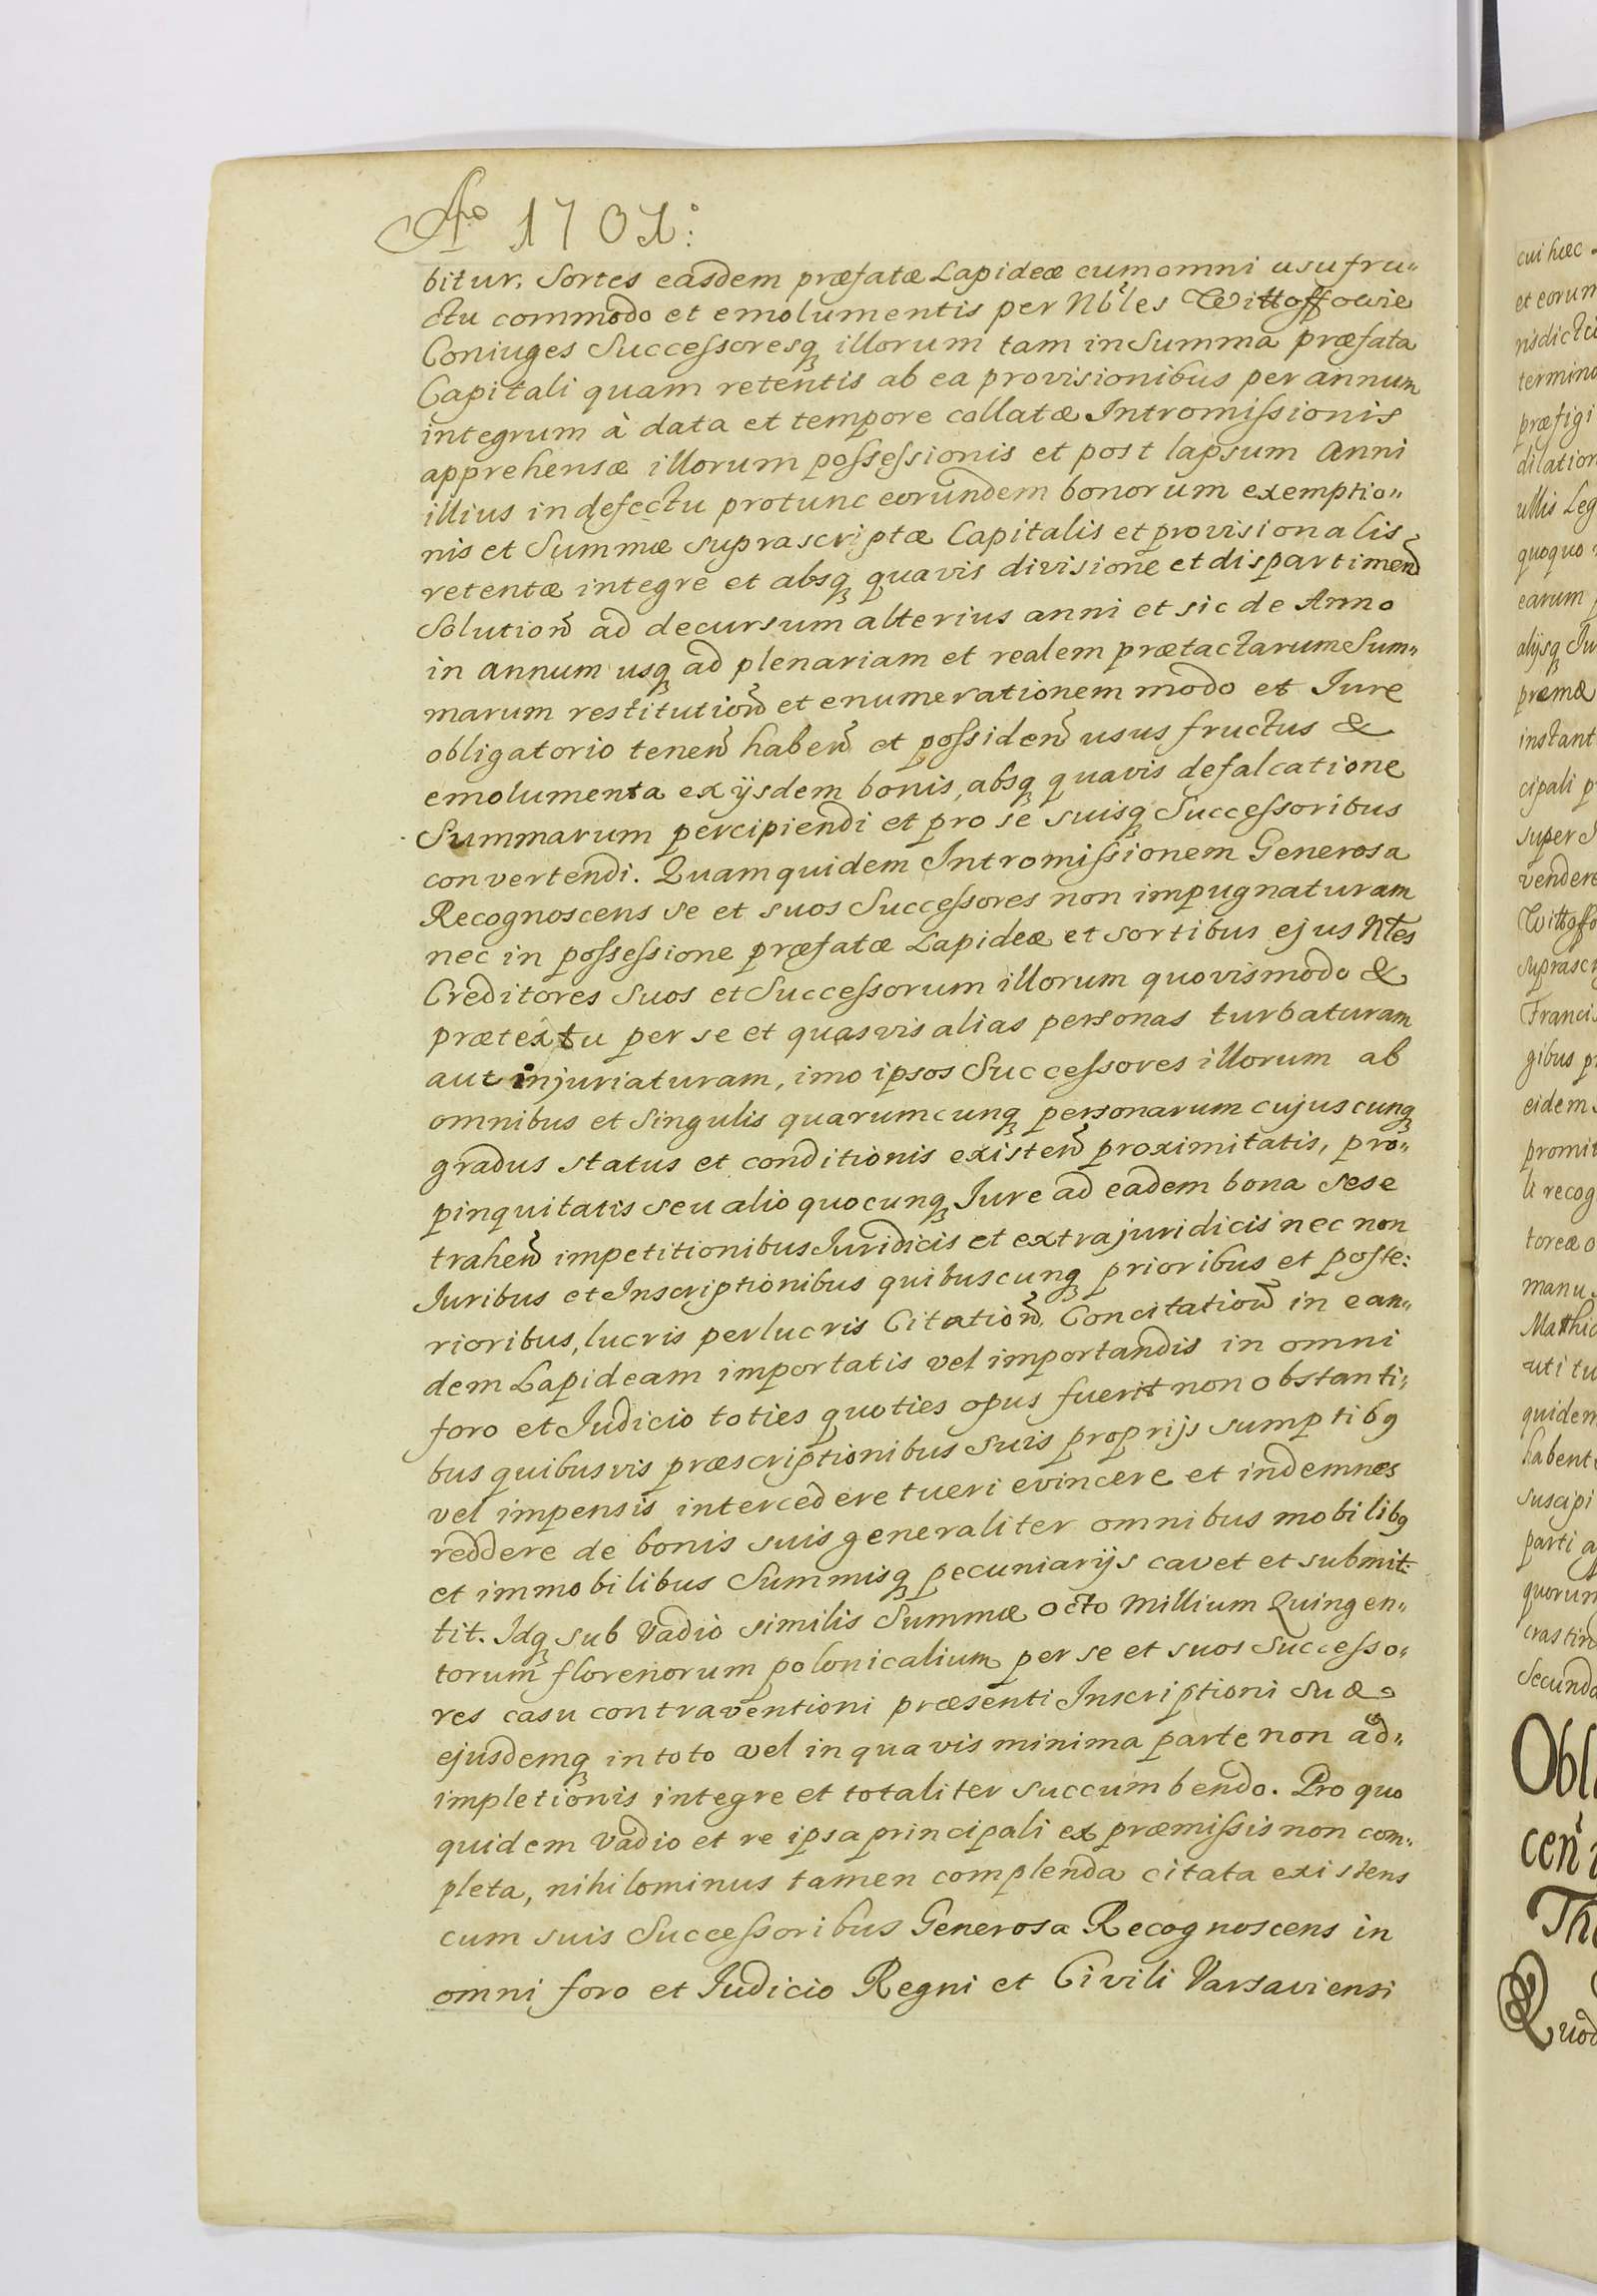 Aº 1701:
bitur. Sortes easdem præfatæ Lapideæ cum omni usufru„
ctu commodo et emolumentis per Nb̃les Wittoffowie
Coniuges Succeſsoresq₃ illorum tam in Summa præfata
Capitali quam retentis ab ea provisionibus per annum
integrum à data et tempore collatæ Intromiſsionis
apprehensæ illorum poſseſsionis et post lapsum Anni
illius in defectu protunc eorundem bonorum exemptio„
nis et Summæ suprascriptæ Capitalis et provisionalis
retentæ integre et absq₃ quavis divisione et dispartimen̄
Solution̄ ad decursum alterius anni et sic de Anno
in annum usq₃ ad plenariam et realem prætactarum Sum„
marum restitution̄ et enumerationem modo et Iure
obligatorio tenen̄ haben̄ et poſsiden̄ usus fructus &
emolumenta ex ijsdem bonis, absq₃ quavis defalcatione
Summarum percipiendi et pro se suisq₃ Succeſsoribus
convertendi. Quam quidem Intromiſsionem Generosa
Recognoscens se et suos Succeſsores non impugnaturam
nec in poſseſsione præfatæ Lapideæ et sortibus ejus Nt̃es
Creditores suos et Succeſsorum illorum quovismodo &
prætextu per se et quasvis alias personas turbaturam
aut injuriaturam, imo ipsos Succeſsores illorum ab
omnibus et singulis quarumcunq₃ personarum cujuscunq₃
gradus status et conditionis existen̄ proximitatis, pro„
pinquitatis seu alio quocunq₃ Iure ad eadem bona sese
trahen̄ impetitionibus Iuridicis et extrajuridicis nec non
Iuribus et Inscriptionibus quibuscunq₃ prioribus et poste:
rioribus, lucris perlucris Citation̄. Concitation̄ in ean„
dem Lapideam importatis vel importandis in omni
foro et Iudicio toties quoties opus fuerit non obstanti„
bus quibusvis præscriptionibus suis proprijs sumptibꝯ
vel impensis intercedere tueri evincere et indemnes
reddere de bonis suis generaliter omnibus mobilibꝯ
et immobilibus Summisq₃ pecuniarijs cavet et submit:
tit. Idq₃ sub Vadio similis Summæ octo Millium Quingen„
torum florenorum polonicalium per se et suos Succeſso„
res casu contraventioni præsenti Inscriptioni suæ
ejusdemq₃ in toto vel in quavis minima parte non ad„
impletionis integre et totaliter succumbendo. Pro quo
quidem Vadio et re ipsa principali ex præmiſsis non com„
pleta, nihilominus tamen complenda citata existens
cum suis Succeſsoribus Generosa Recognoscens in
omni foro et Iudicio Regni et Civili Varsaviensi
cui hæc
et eorum
risdicti
termino
præfigi
dilation
ullis Leg
quoquo
earum
alijsq₃ Iu
præmæ
instant
cipali p
super I
vendere
Wittoffo
suprasc
Franci
gibus p
eidem
promit
li recog
toreæ o
manu
Matthi
uti tu
quidem
habent
suscipi
parti a
quorum
crastin
Secunda
Obl
cen̄
Th
Quod